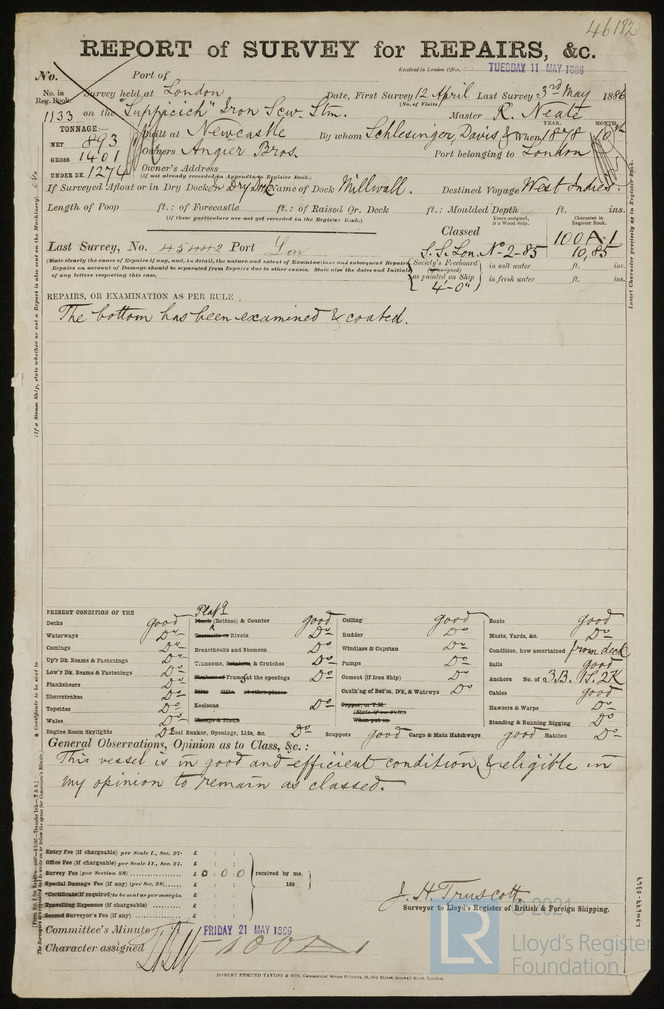 46182
REPORT of SURVEY for REPAIRS, &c.
Received in London Office, TUESDAY 11 MAY 1886
No. Port of
No. in Reg. Book. Survey held at London Date, First Survey 12 April Last Survey 3rd May 1886
(No. of Visits)
1133 on the "Suppicich" Iron Scw. Stm. Master R. Neate
TONNAGE:— YEAR. MONTH.
NET 893 Built at Newcastle By whom Schlesinger, Davis & When 1878 10
GROSS 1401 Owners Angier Bros. Port belonging to London
UNDER DK. 1274 Owner's Address
(if not already recorded in Appendix to Register Book.)
If Surveyed Afloat or in Dry Dock Dry Dock Name of Dock Millwall. Destined Voyage West Indies.
Length of Poop ft.: of Forecastle ft.: of Raised Qr. Deck ft.: Moulded Depth ft. ins.
(if these particulars are not yet recorded in the Register Book.)
Years assigned, if a Wood Ship. Character in Register Book.
Classed 100A.1
Last Survey, No. 45442 Port Lon S.S. Lon. No 2-85 10,85
(State clearly the cause of Repairs if any, and, in detail, the nature and extent of Examinations and subsequent Repairs.
Repairs on account of Damage should be separated from Repairs due to other causes. State also the dates and Initials
of any letters respecting this case.
Society's Freeboard as painted on Ship 4'-0"
in salt water ft. ins.
in fresh water ft. ins.
REPAIRS, OR EXAMINATION AS PER RULE
The bottom has been examined & coated.
PRESENT CONDITION OF THE
Decks good
Waterways Do
Comings Do
Up'r Dk. Beams & Fastenings Do
Low'r Dk. Beams & Fastenings Do
Planksheers Do
Sheerstrakes Do
Topsides Do
Wales Do
Engine Room Skylights Do
Plat'g (Bottom) & Counter good
Rivets Do
Breasthooks and Stemson Do
Transoms, & Crutches Do
Frames at the openings Do
Keelsons Do
Coal Bunker, Openings, Lids, &c. Do
Ceiling good
Rudder Do
Windlass & Capstan Do
Pumps Do
Cement (if Iron Ship) Do
Caulk'ng of Bot'm, D'k, & Waterwys Do
Scuppers good Cargo & Main Hatchways good Hatches Do
Boats good
Masts, Yards, &c. Do
Condition, how ascertained from deck
Sails good
Anchors No. of 3B. 1S. 2K
Cables good
Hawsers & Warps Do
Standing & Running Rigging Do
General Observations, Opinion as to Class, &c.:
This vessel is in good and efficient condition & eligible in
my opinion to remain as classed.
Entry Fee (if chargeable) per Scale I., Sec. 27. £ : :
Office Fee (if chargeable) per Scale II., Sec. 27. £ : :
Survey Fee (per Section 28) £ 0 : 0 : 0 received by me,
Special Damage Fee (if any) (per Sec. 28) £ : : 188
*Certificate (if required) to be sent as per margin
Travelling Expenses (if chargeable) £ : :
Second Surveyor's Fee (if any) £ : :
J. H. Truscott
Surveyor to Lloyd's Register of British & Foreign Shipping.
Committee's Minute FRIDAY 21 MAY 1886
Character assigned 100A1
ROBERT EDMUND TAYLOR & SON, Commercial Steam Printers, 19, Old Street, Goswell Road, London.
© 2021
LR
Lloyd's Register
Foundation